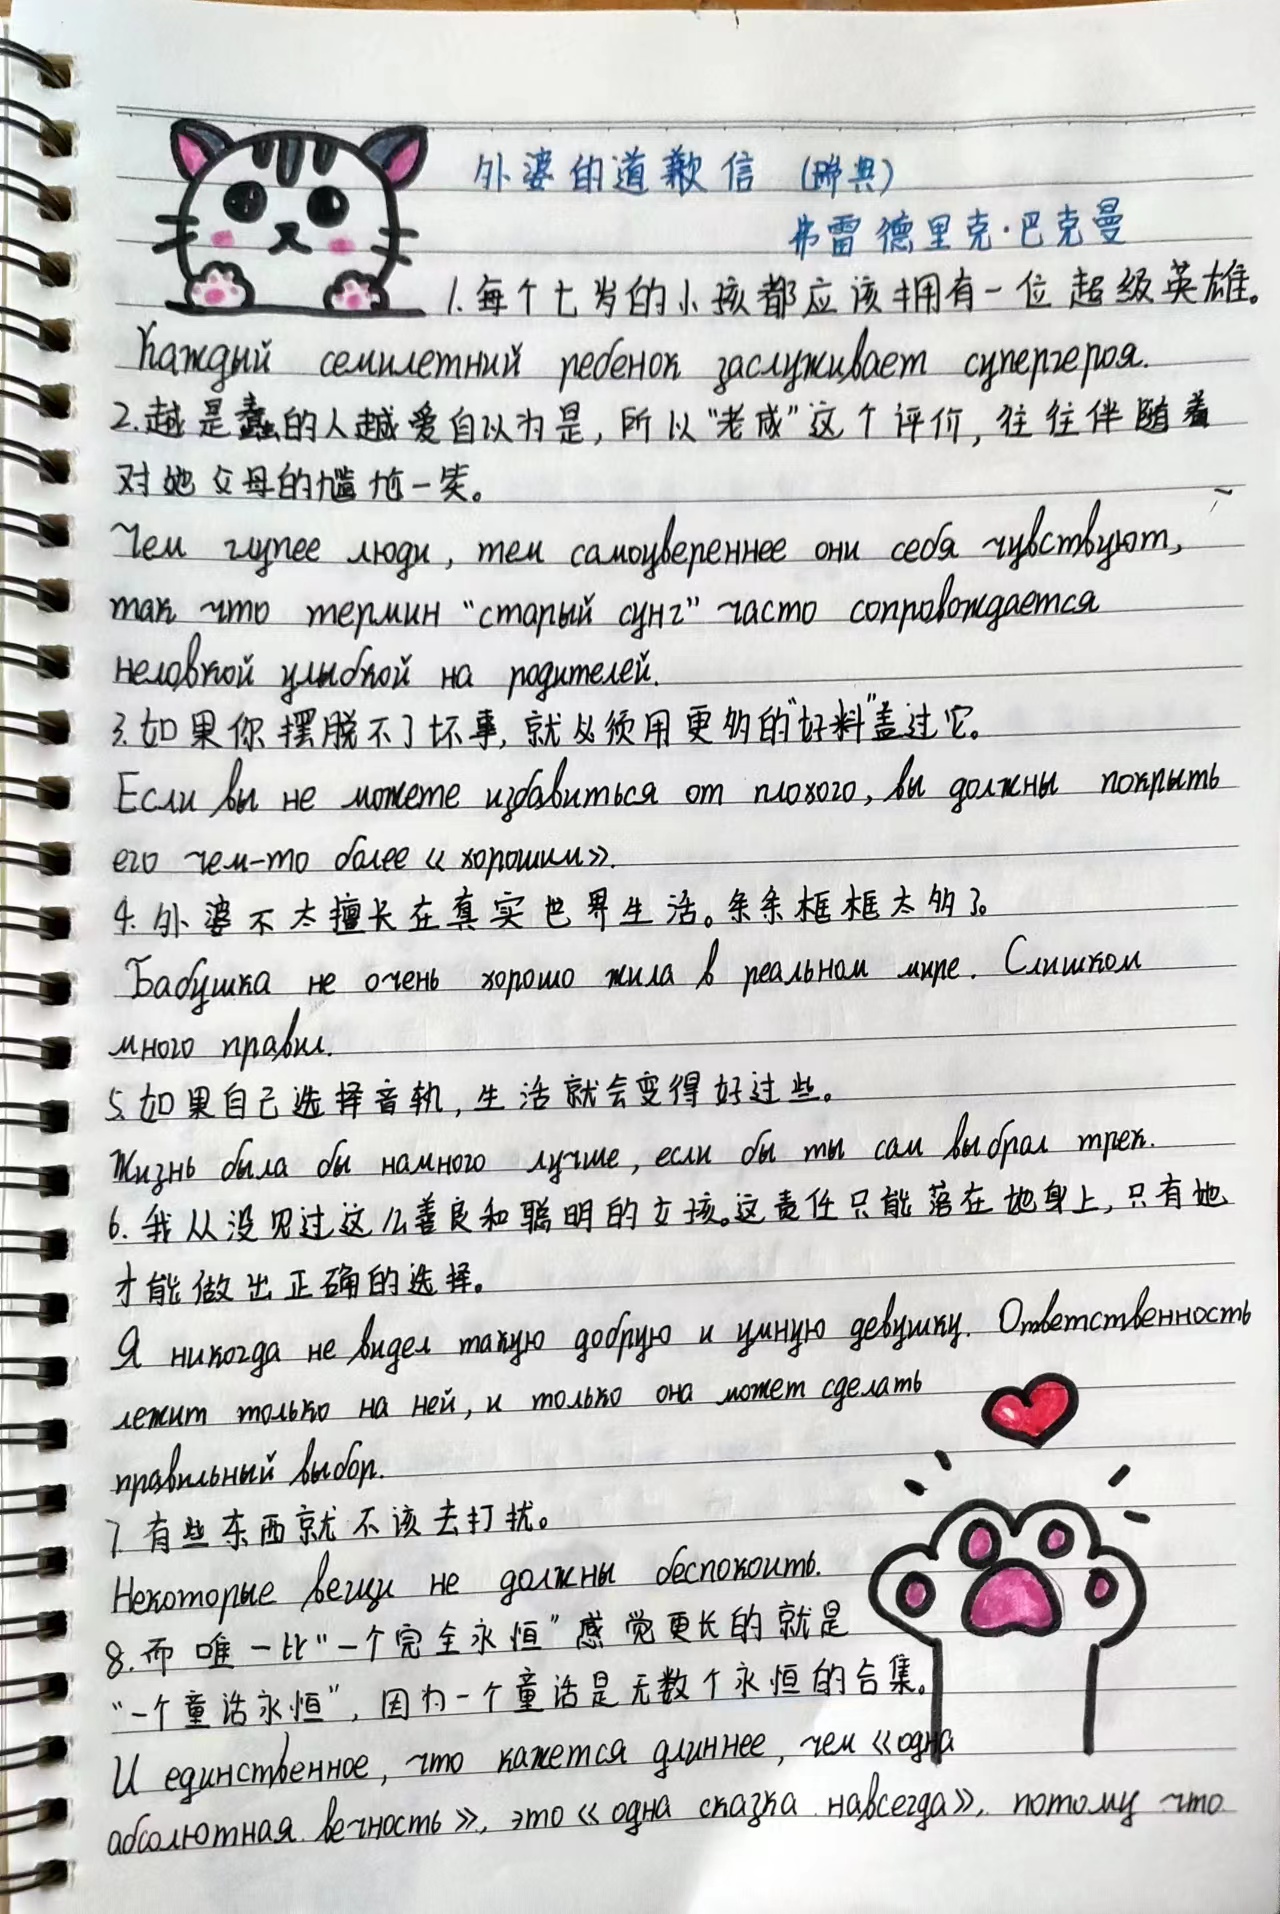 外婆的道歉信 (瑞典)
弗雷德里克·巴克曼
1.每个七岁的小孩都应该拥有一位超级英雄。
Каждый семилетний ребенок заслуживает супергероя.
2.越是蠢的人越爱自以为是,所以“老成”这个评价,往往伴随着
对她父母的尴尬一笑。
Чем глупее люди, тем самоувереннее они себя чувствуют,
так что термин “старый сунг” часто сопровождается
неловкой улыбкой на родителей.
3.如果你摆脱不了坏事,就必须用更多的“好料”盖过它。
Если вы не можете избавиться от плохого, вы должны покрыть
его чем-то более «хорошим».
4.外婆不太擅长在真实世界生活。条条框框太多了。
Бабушка не очень хорошо жила в реальном мире. Слишком
много правил.
5.如果自己选择音轨,生活就会变得好过些。
Жизнь была бы намного лучше, если бы ты сам выбрал трек.
6.我从没见过这么善良和聪明的女孩。这责任只能落在她身上,只有她
才能做出正确的选择。
Я никогда не видел такую добрую и умную девушку. Ответственность
лежит только на ней, и только она может сделать
правильный выбор.
7.有些东西就不该去打扰。
Некоторые вещи не должны беспокоить.
8.而唯一比“一个完全永恒”感觉更长的就是
“一个童话永恒”,因为一个童话是无数个永恒的合集。
И единственное, что кажется длиннее, чем «одна
абсолютная вечность», это «одна сказка навсегда», потому что